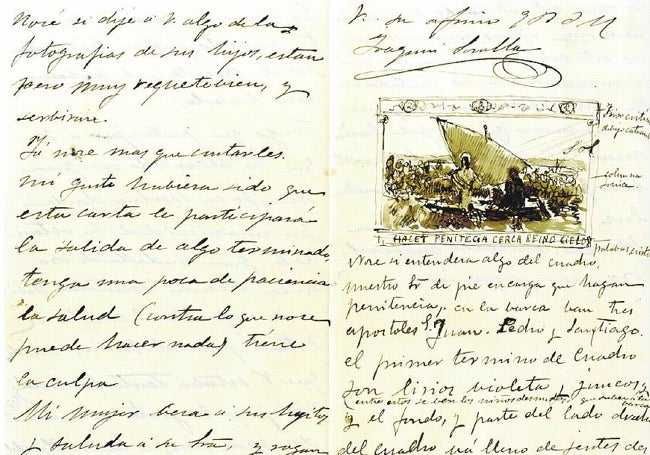 Nose si dije á V. algo de las
fotografias de sus hijos, estan
pero muy requetebien, y
serbirme.
Yá nose mas que contarles.
mi gusto hubiera sido que
esta carta le participará
la salida de algo terminado,
tenga una poca de paciencia
la salud (contra lo que nose
puede hacer nada) tiene
la culpa
Mi mujer besa á sus hijitos
y saluda á su Sra, y
V. su afmo
Joaquin Sorolla
Sol
columna
HACET PENITECIA CERCA REINO CIELOS
palabras cristo
Nose si entendera algo del cuadro,
nuestro Sr de pie encarga que hagan
penitencia, en la barca van tres
apostoles S. Juan. Pedro y Santiago.
el primer termino de Cuadro
son lirios violeta y juncos y
(entre estos se ven los niños desnudos
y el fondo, y parte del lado derecho
del cuadro vá lleno de jentes de